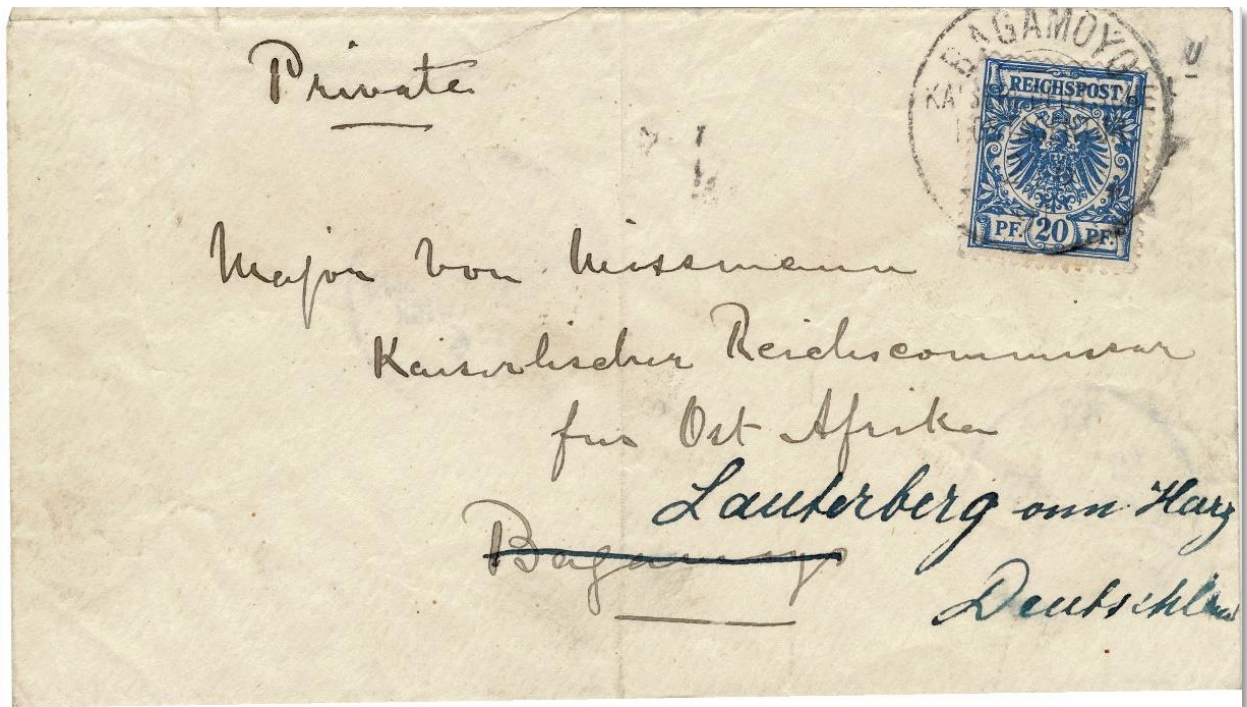 Private
BAGAMOYO
REICHSPOST
PF. 20 PF.
Major von Wissmann
Kaiserlischer Reichscommissar
fur Ost Afrika
Lauterberg
Harz
Bagamoyo
Deutschland